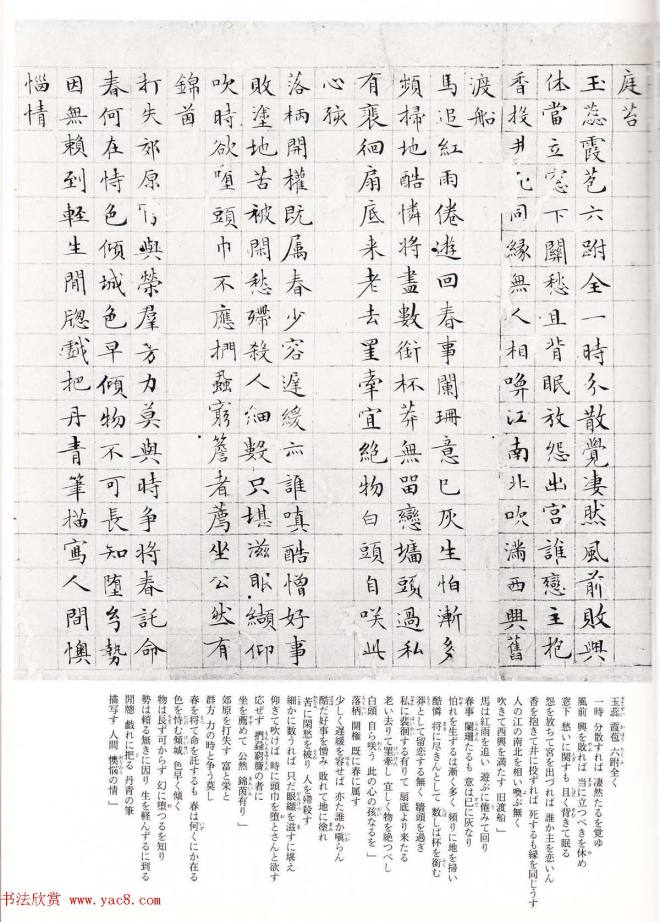 庭苔
玉蕊霞苞六跗全一時分散覺淒然風前敗興
休當立窓下關愁且背眠放怨出宮誰戀主抱
香投井死同緣無人相喚江南北吹滿西興舊
渡船
馬追紅雨倦遊回春事闌珊意已灰生怕漸多
頻掃地酷憐將盡數銜杯莽無留戀墻頭過私
有裹徊扇底来老去罣牽宜絕物白頭自咲此
心孩
落柄開權既属春少容遲緩亦誰嗔酷憎好事
敗塗地苦被閑愁殢殺人細數只堪滋眼纈仰
吹時欲墮頭巾不應捫蝨窮簷者薦坐公然有
錦茵
打失郊原富與榮羣芳力莫與時争將春託命
春何在恃色傾城色早傾物不可長知堕勢
因無賴到輕生閒牕戲把丹青筆描寫人間懊
惱情
玉蕊 霞苞 六跗全く
一時 分散すれば 凄然たるを覚ゆ
風前 興を敗れば 当に立つべきを休め
窓下 愁いに関するも 且く背きて眠る
怨を放ちて宮を出づれば 誰か主を恋いん
香を抱きて井に投ずれば 死するも縁を同じうす
人の江の南北を相い喚ぶ無く
吹きて西興を満たす 旧渡船」
馬は紅雨を追い 遊ぶに倦みて回り
春事 闌珊たるも 意は已に灰なり
怕れを生ずるは漸く多く 頻りに地を掃い
酷憐 将に尽きんとして 数しば杯を銜む
莽として留恋する無く 牆頭を過ぎ
私に裴徊する有りて 扇底より来たる
老い去りて罣牽し 宜しく物を絶つべし
白頭 自ら咲う 此の心の孩なるを」
落柄 開権 既に春に属す
少しく遅緩を容せば 亦た誰か嗔らん
酷だ好事を憎み 敗れて地に塗れ
苦に閑愁を被り 人を殢殺す
細かに数うれば 只だ眼纈を滋すに堪え
仰ぎて吹けば 時に頭巾を堕とさんと欲す
応ぜず 捫蝨窮簷の者に
坐を薦めて 公然 錦茵有り」
郊原を打失す 富と栄と
群方 力の時と争う莫し
春を将て命を託するも 春は何くにか在る
色を恃む傾城 色早く傾く
物は長ず可からず 幻に堕つるを知り
勢は頼る無きに因り 生を軽んずるに到る
閑牕 戯れに把る 丹青の筆
描写す 人間 懊悩の情」
书法欣赏 www.yac8.com